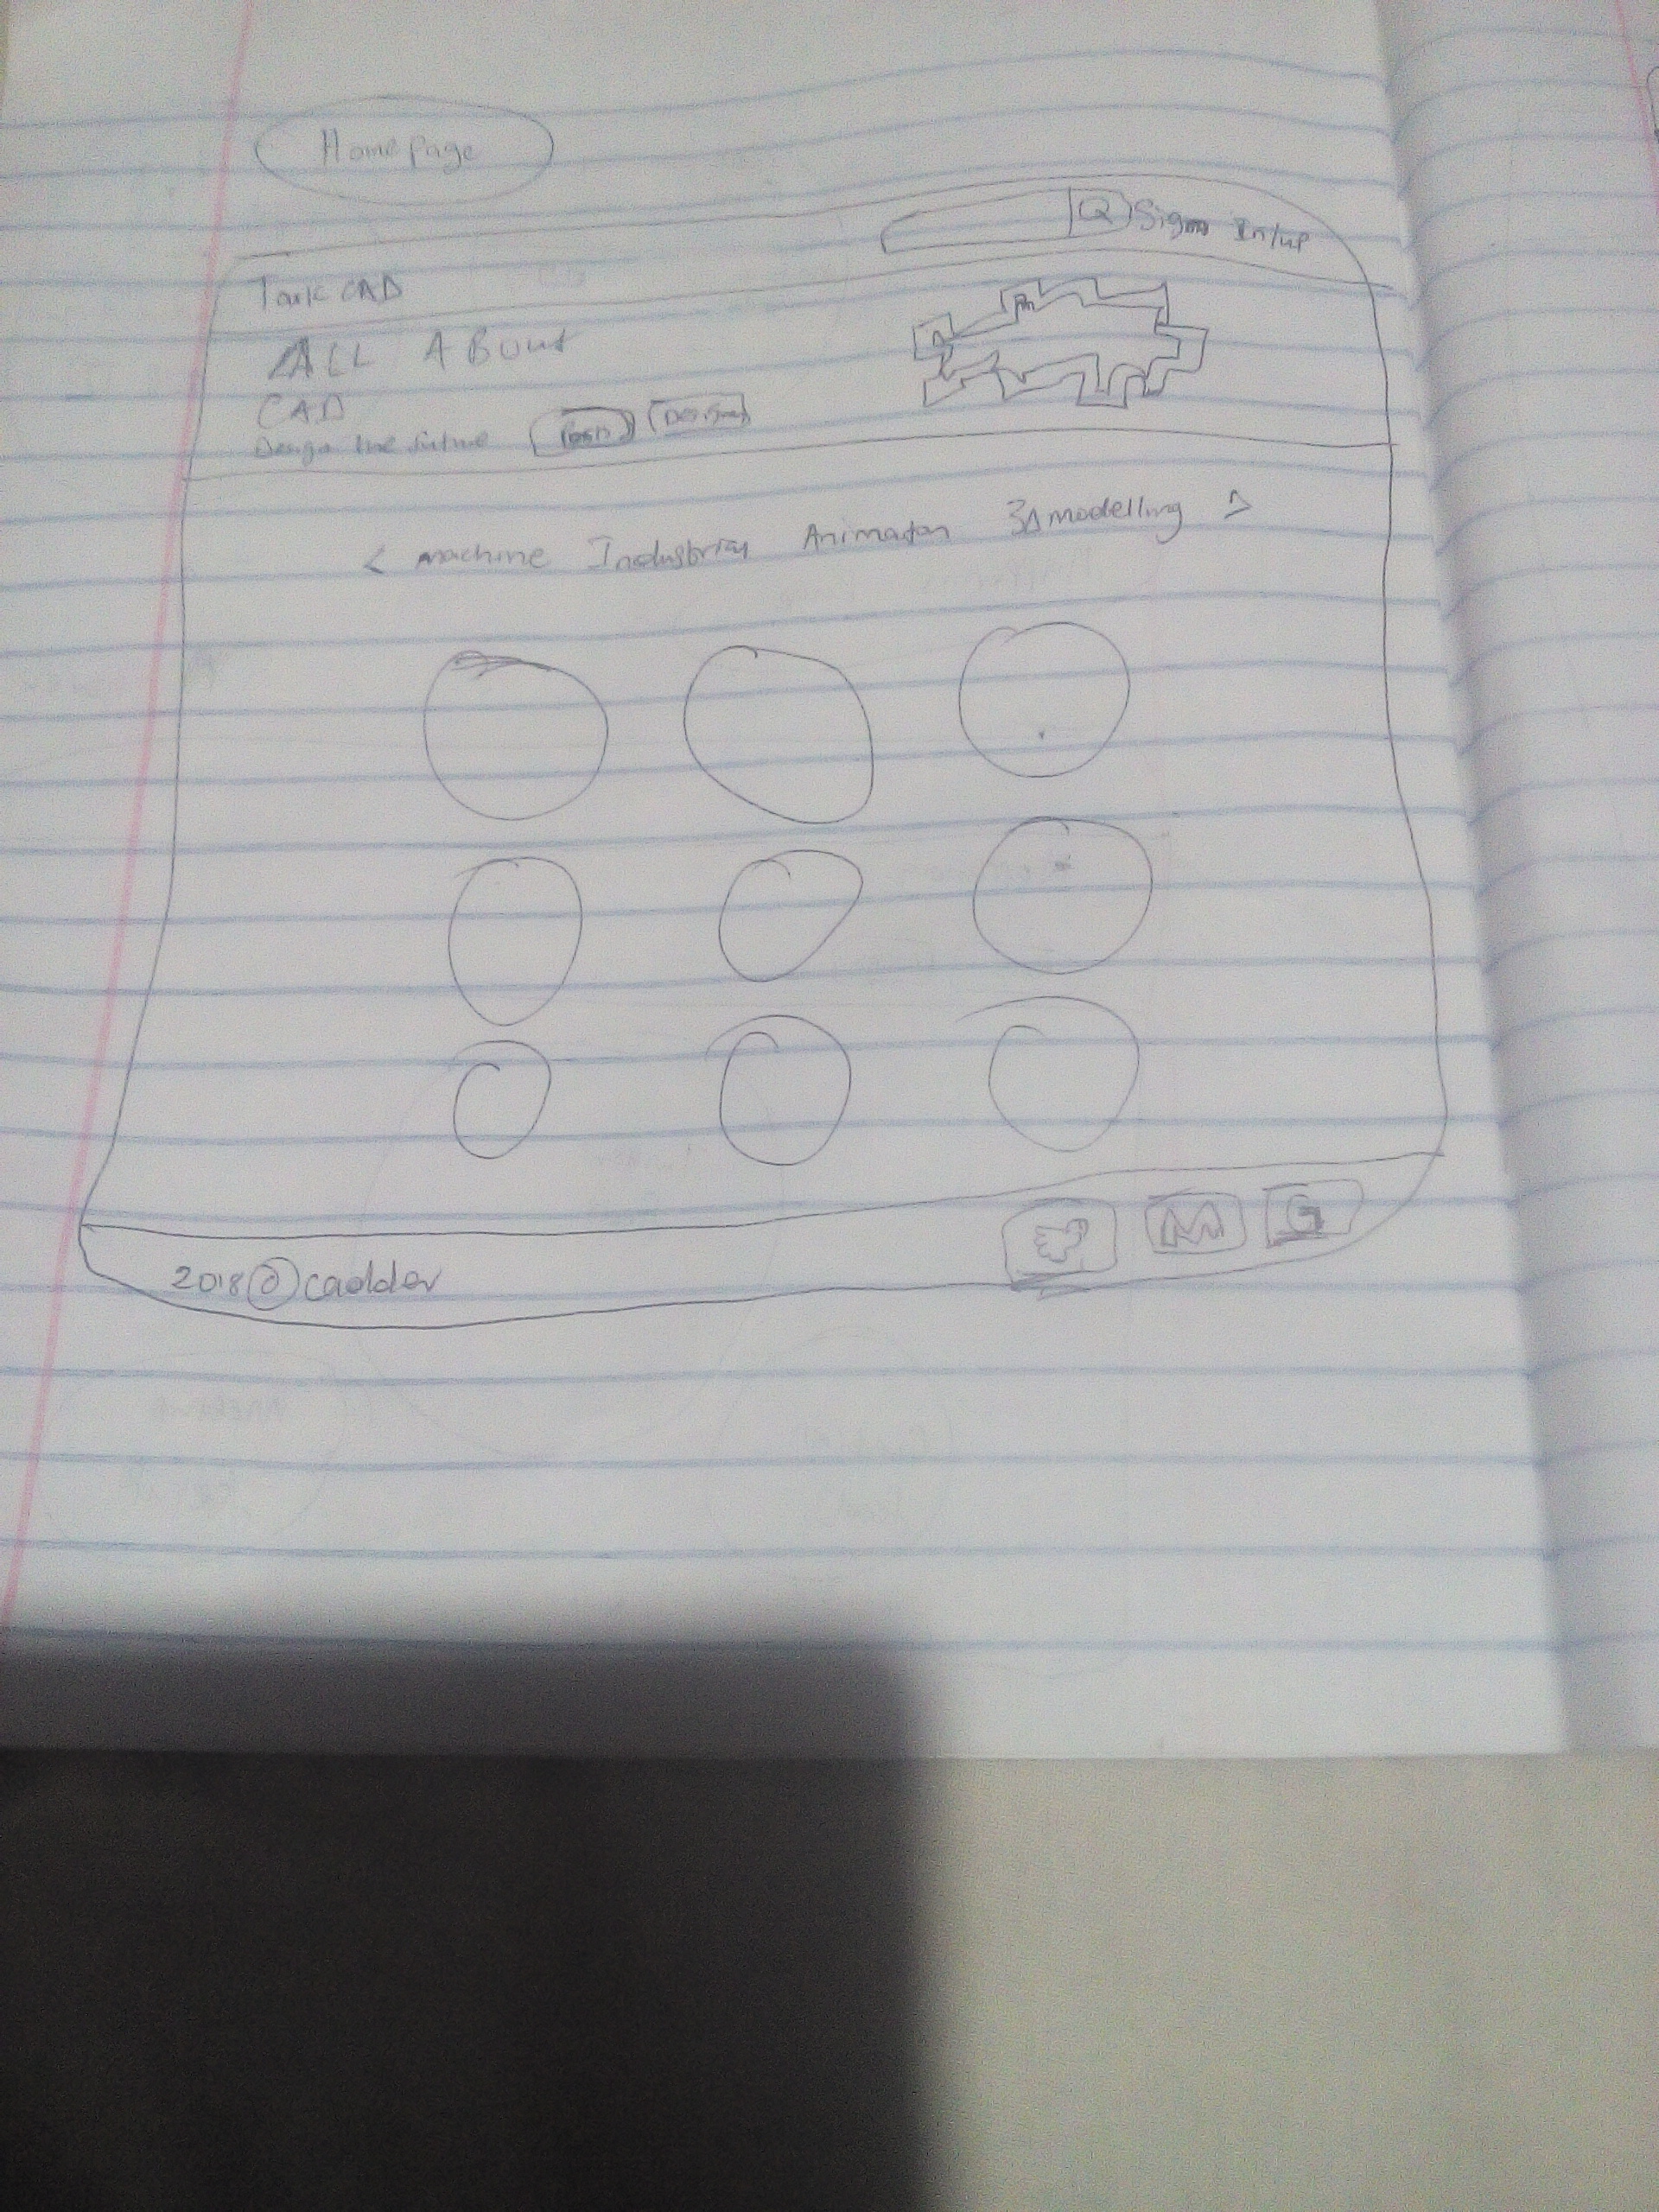 Home page
Sign In/up
CAD
ALL ABOUT
CAD
Design the future
< machine Industrial Animation 3D modelling >
2018 © cadder
M G